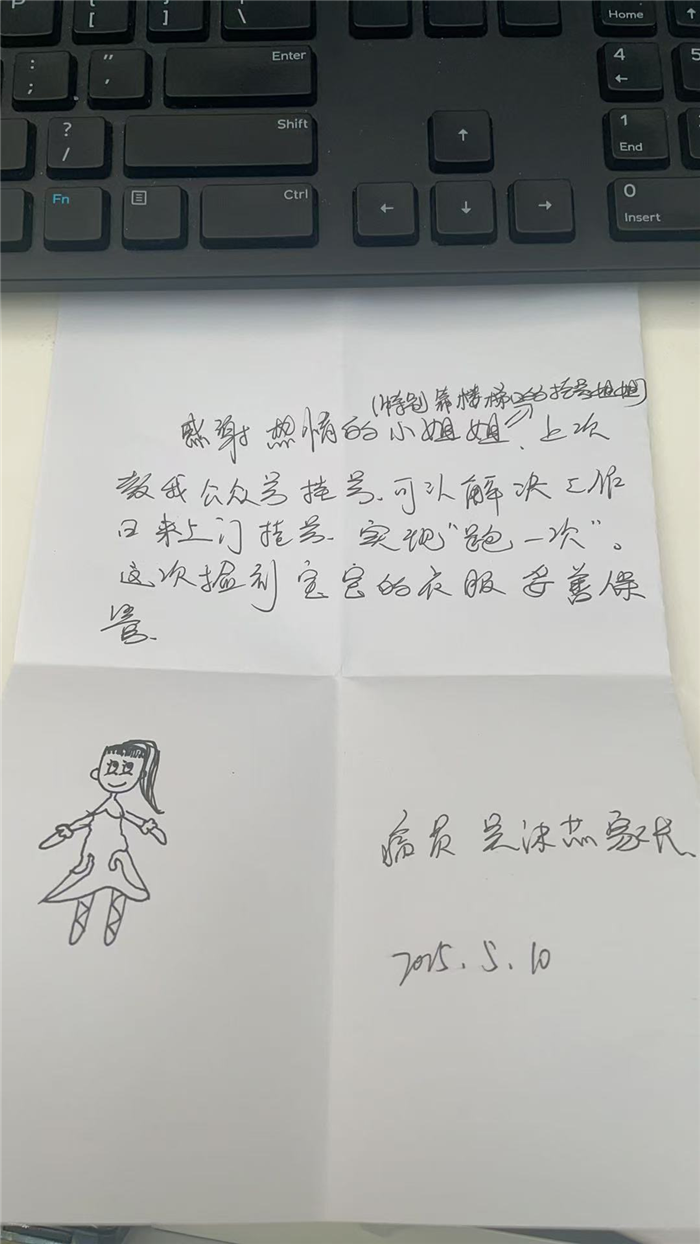 P
{
[
}
]
|
\
Home
:
;
"
,
Enter
4
←
5
?
/
Shift
↑
1
End
Fn
Ctrl
←
↓
→
0
Insert
(特别靠楼梯口的挂号姐姐)
感谢热情的小姐姐,上次
教我公众号挂号,可以解决工作
日来上门挂号,实现"跑一次"。
这次捡到宝宝的衣服妥善保
管。
病员 吴沐 家长
2025.5.10